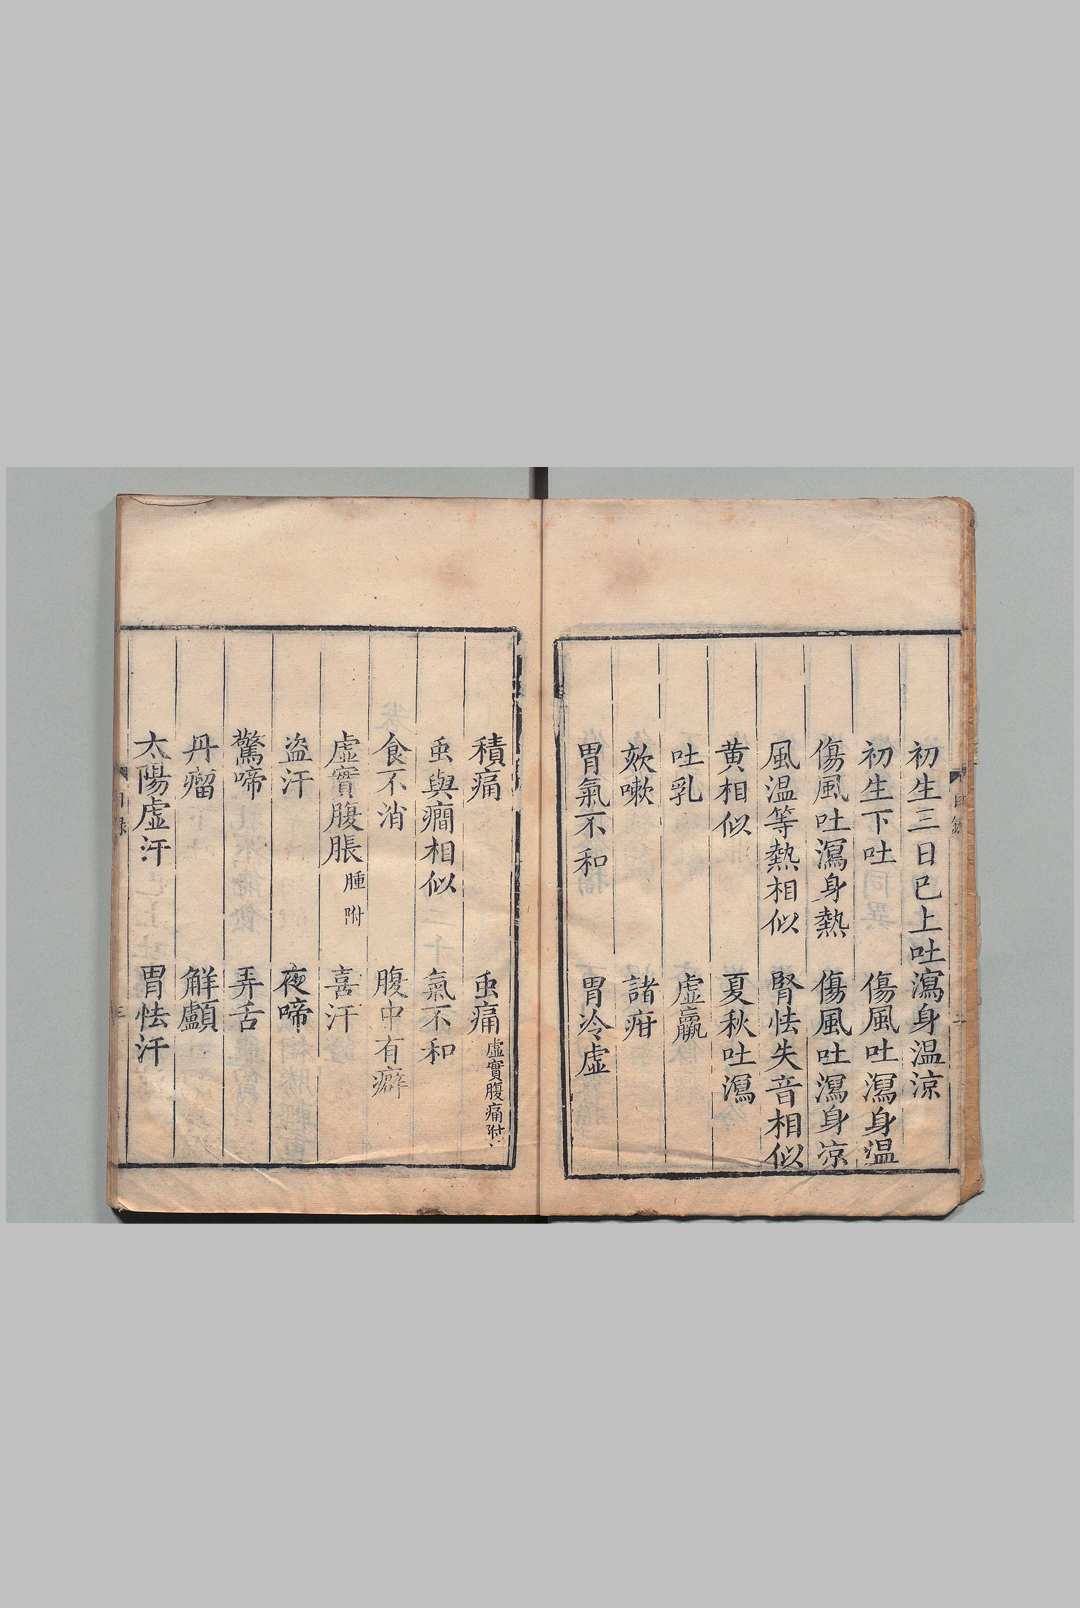 初生三日已上吐瀉身温涼
初生下吐　傷風吐瀉身温
傷風吐瀉身熱　傷風吐瀉身凉
風温等熱相似　腎怯失音相似
黄相似　夏秋吐瀉
吐乳　虚羸
欬嗽　諸疳
胃氣不和　胃冷虚
積痛　䖝痛虚實腹痛附
䖝與癇相似　氣不和
食不消　腹中有癖
虚實腹脹腫附　喜汗
盜汗　夜啼
驚啼　弄舌
丹瘤　解顱
太陽虚汗　胃怯汗
目録